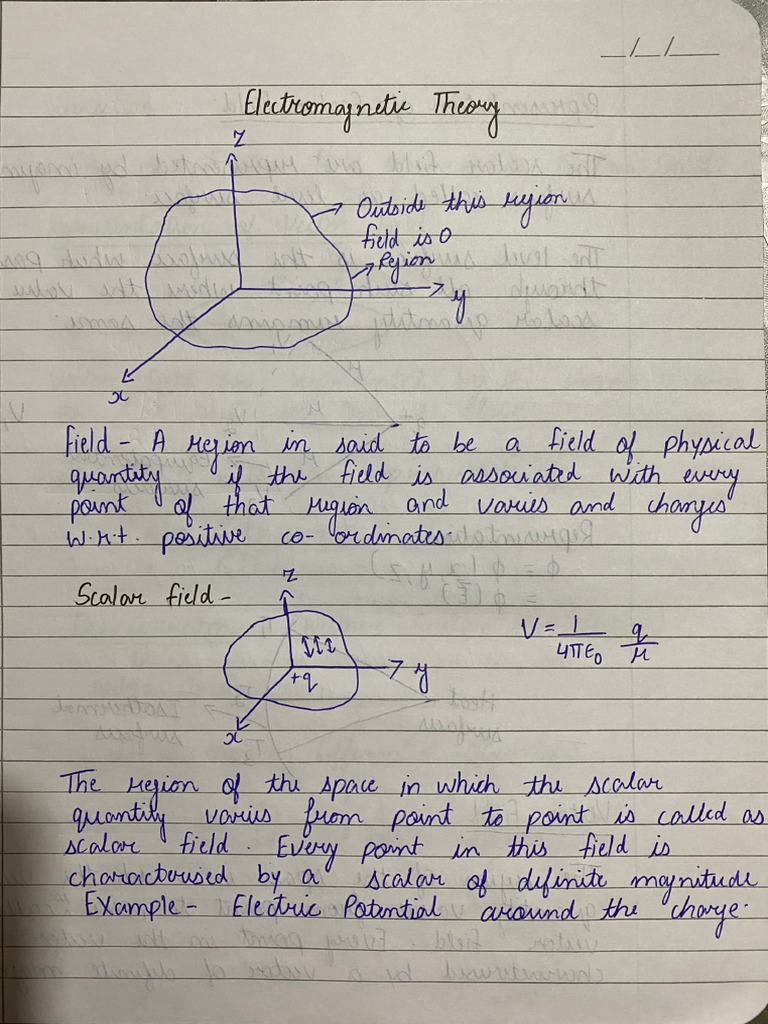 _/_/_
Electromagnetic Theory
z
Outside this region
field is 0
Region
y
x
Field - A region in said to be a field of physical
quantity if the field is associated with every
point of that region and varies and changes
w.r.t. positive co-ordinates.
Scalar field -
z
V = 1/4πε₀ q/r
+q
y
x
The region of the space in which the scalar
quantity varies from point to point is called as
scalar field. Every point in this field is
characterised by a scalar of definite magnitude
Example - Electric Potential around the charge.